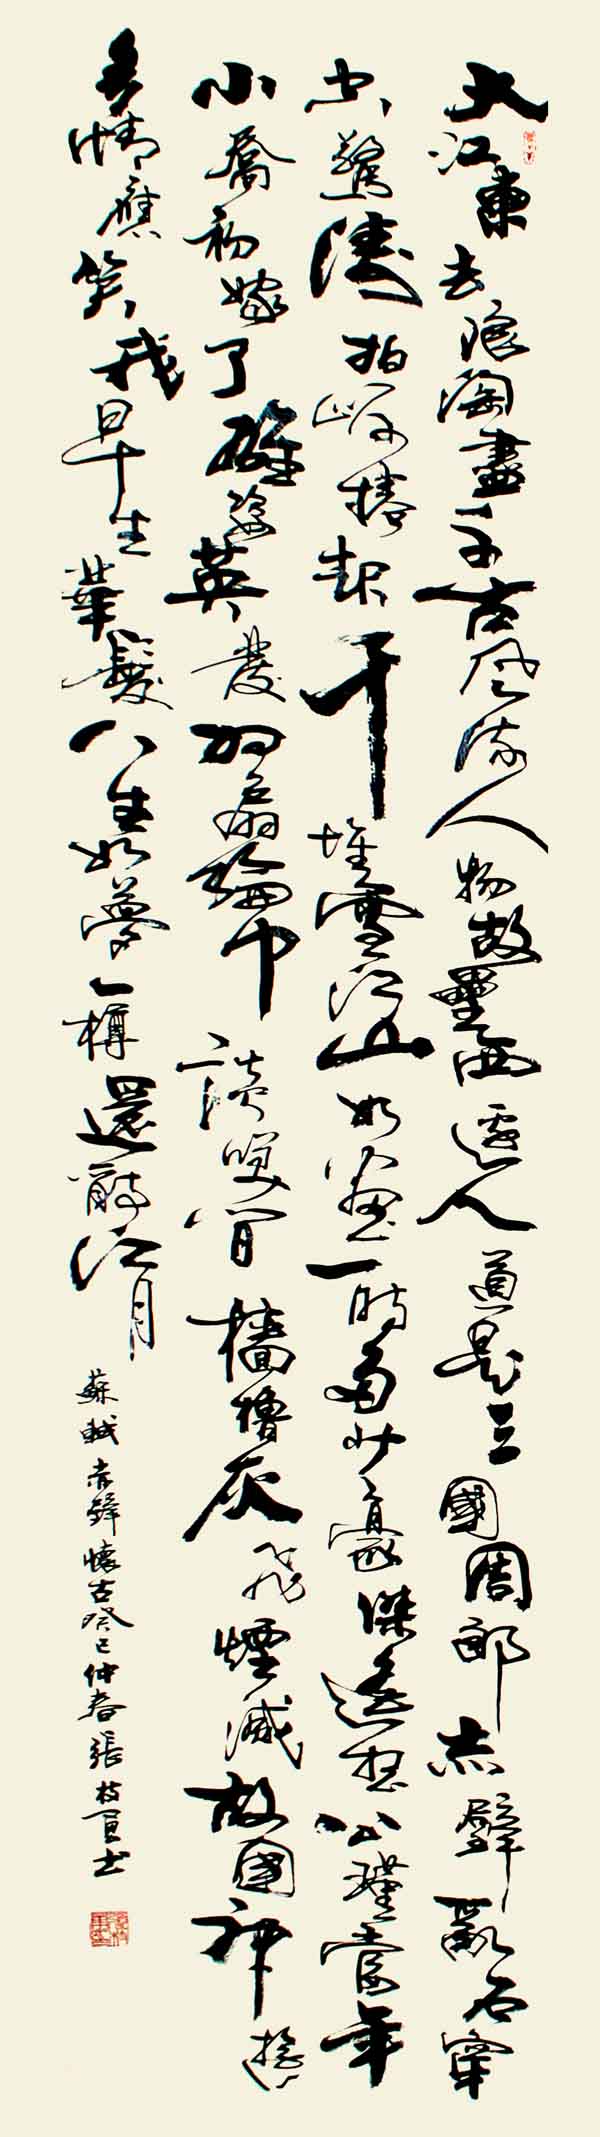 大江東去浪淘盡千古風流人物故壘西邊人道是三國周郎赤壁亂石穿
空驚濤拍岸捲起千堆雪江山如畫一時多少豪傑遙想公瑾當年
小喬初嫁了雄姿英發羽扇綸巾談笑間檣櫓灰飛煙滅故國神遊
多情應笑我早生華髮人生如夢一樽還酹江月
蘇軾赤壁懷古癸巳仲春張枝书